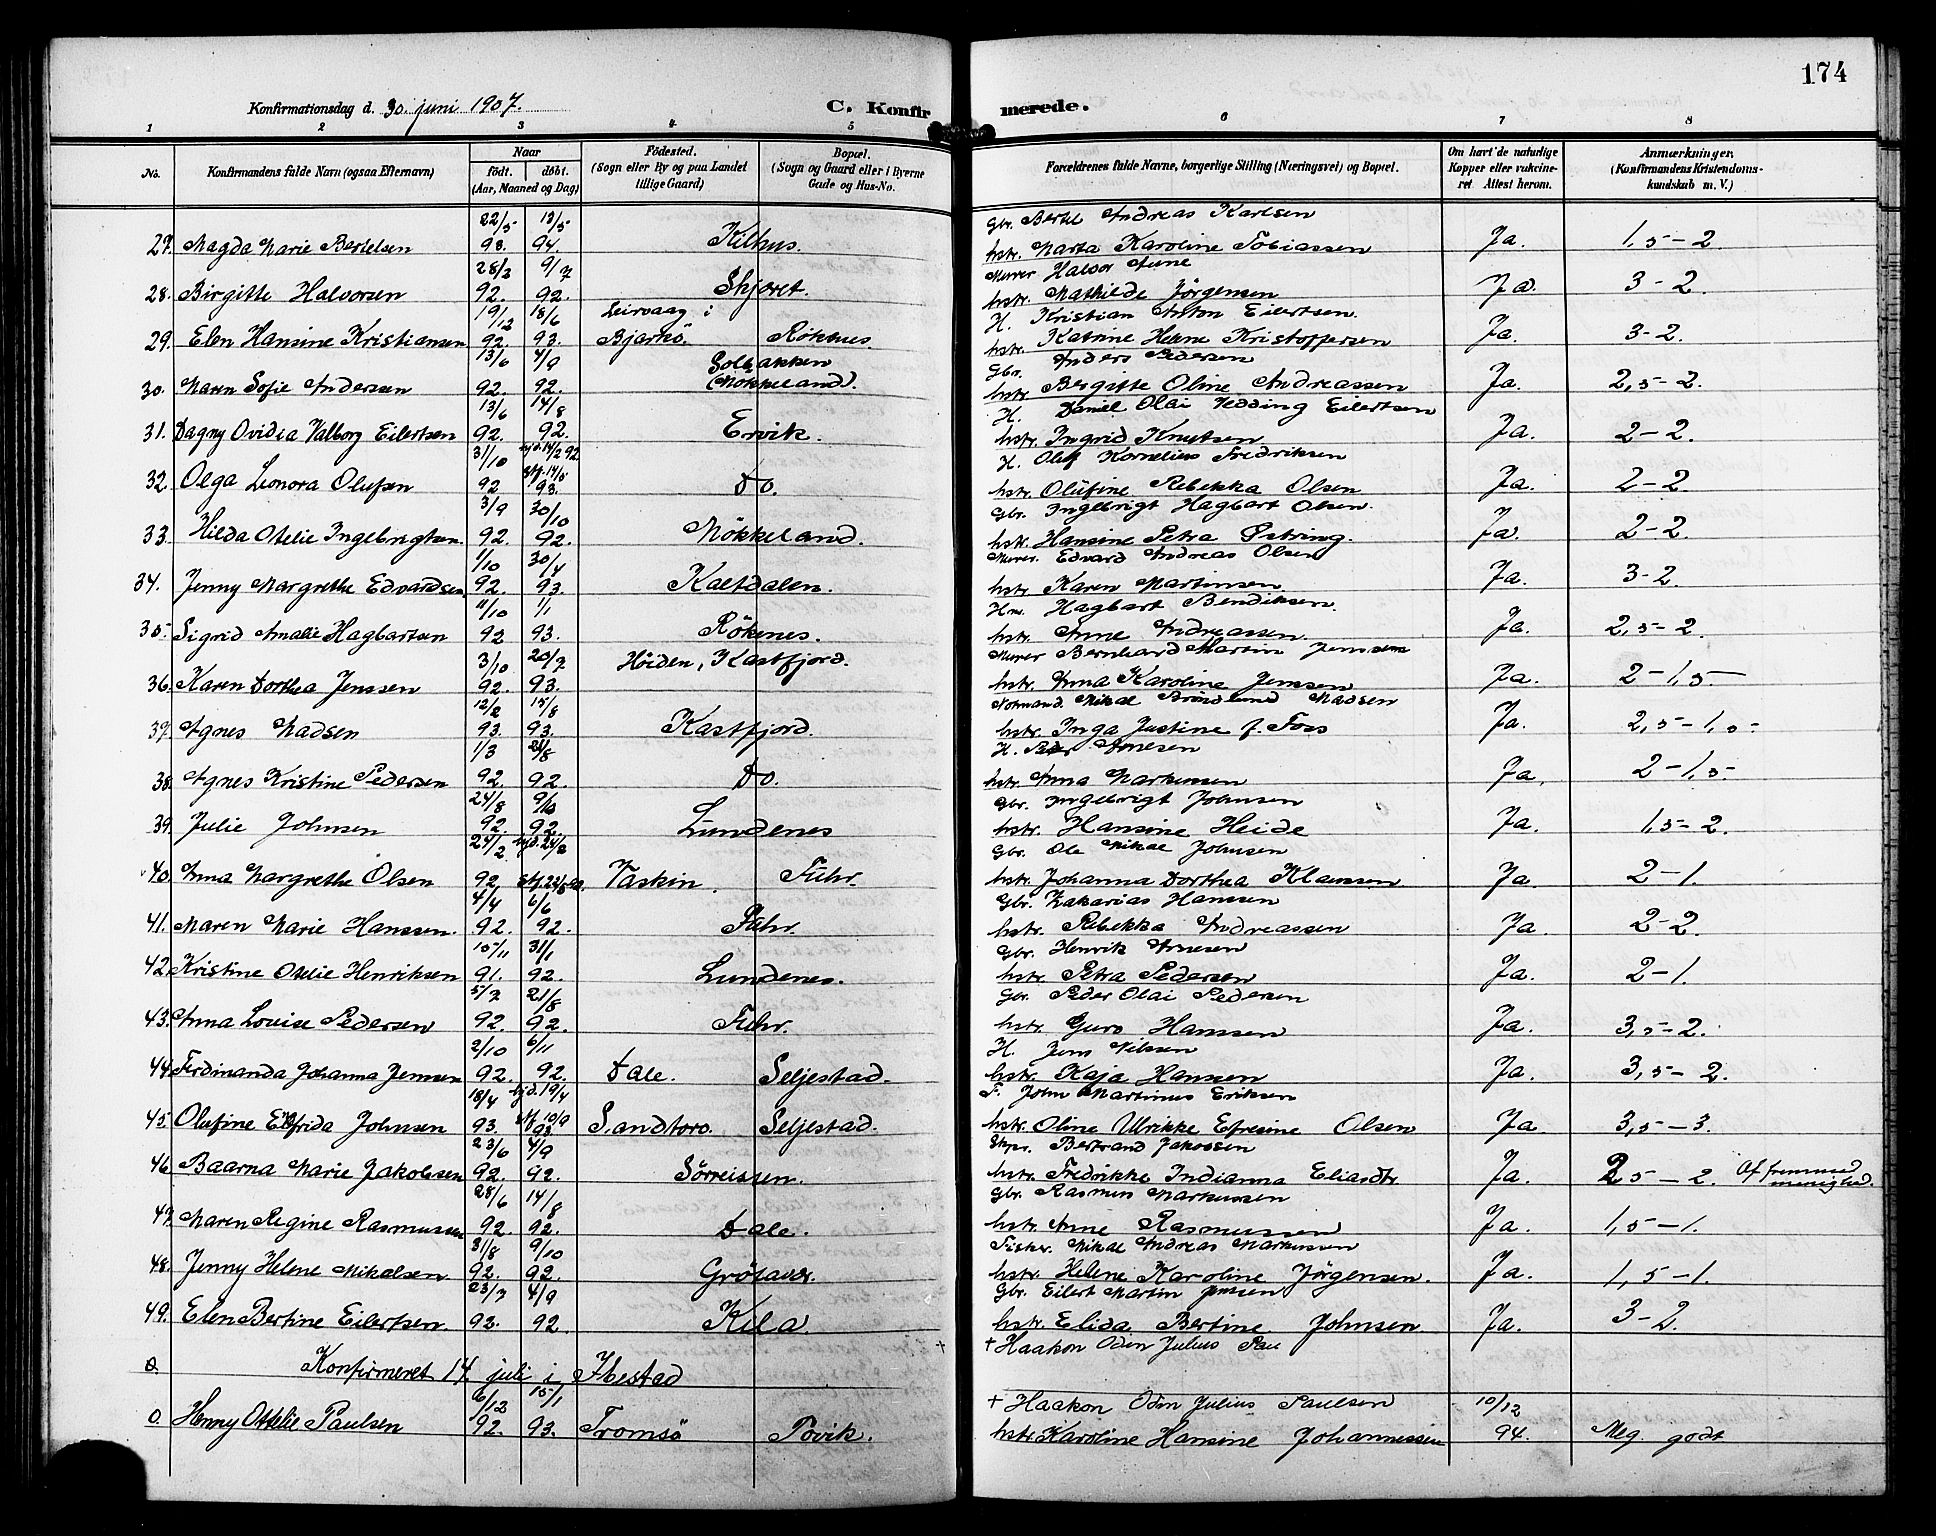 174
Konfirmationsdag d. 30. juni 1907. C. Konfirmerede.
1 2 3 4 5 6 7 8
No. Konfirmandens fulde Navn (ogsaa Efternavn) Naar født. døbt. (Aar, Maaned og Dag) Fødested. (Sogn eller By og paa Landet tillige Gaard) Bopæl. (Sogn og Gaard eller i Byerne Gade og Hus-No. Forældrenes fulde Navne, borgerlige Stilling (Næringsvei) og Bopæl. Om havt de naturlige Kopper eller vakcineret Attest herom. Anmærkninger. (Konfirmandens Kristendomskundskab m. V.)
22/5 13/5 Gbr. Bertel Andreas Karlsen
27. Magda Marie Bertelsen 93. 94. Kilhus. hstr. Marta Karoline Tobiassen Ja. 1,5-2
28/2 9/7 Murer Halvor Lune
28. Birgitte Halvorsen 92. 92. Skjøret. hstr. Mathilde Jørgensen Ja. 3-2.
19/12 18/6 Leirvaag i H. Kristian Anton Eilertsen.
29. Elen Hansine Kristiansen 92. 93. Bjarkø. Røkhus. hstr. Katrine Helene Kristoffersen Ja. 3-2.
13/6 4/9 Solbakken Gbr. Anders Pedersen
30. Maren Sofie Andersen 92. 92. (Møkkeland). hstr. Bergitte Oline Andreassen Ja. 2,5-2.
13/6 14/8 H. Daniel Olai Vedding Eilertsen
31. Dagny Ovidia Valborg Eilertsen 92. 92. Ervik. hstr. Ingrid Knutsen Ja. 2-2.
31/10 hjd. 14/2 92 H. Oluf Kornelius Fredriksen
32. Olga Leonora Olufsen 92 stf. 14/5 93. Do. hstr. Olufine Rebekka Olsen Ja. 2-2.
3/9 30/10 Gbr. Ingebrigt Hagbart Olsen.
33. Hilda Otelie Ingebrigtsen. 92. 92. Møkkeland. hstr. Hansine Petra Østring. Ja. 2-2.
1/10 30/4 Murer. Edvard Andreas Olsen
34. Jenny Margrethe Edvardsen 92. 93. Kaltdalen. hstr. Karen Martinsen Ja. 3-2
11/10 1/1 Hm. Hagbart Bendiksen.
35. Sigrid Amalie Hagbartsen 92 93. Røkenes. hstr. Anne Andreassen. Ja. 2,5-2.
3/10 20/7 Høiden, Kastfjord. Murer Bernhard Martin Jenssen
36. Karen Dorthea Jenssen 92. 93. hstr. Anna Karoline Jenssen Ja. 2-1,5
12/2 15/8 Notmand. Mikal Brøndlund Madsen
37. Agnes Madsen 93. 93. Kastfjord. hstr. Inga Justine f. Foss Ja. 2,5-1,5.
1/3 21/8 H. Peder Arnesen
38. Agnes Kristine Pedersen 92. 92. Do. hstr. Anna Markussen Ja. 2-1,5.
24/8 9/10 Gbr. Ingebrigt Johnsen
39. Julie Johnsen 92. 92. Lundenes hstr. Hansine Heide Ja. 1,5-2.
24/2 hjd. 24/2 Gbr. Ole Mikal Johnsen
40. Anna Margrethe Olsen 92. stf. 22/5 92. Vaskin. Fuhr. hstr. Johanna Dorthea Klaussen Ja. 2-1.
4/4 6/6 Gbr. Zakarias Hanssen
41. Maren Marie Hanssen. 92. 92. Fuhr. hstr. Rebekka Andreassen Ja. 2-2.
15/11 31/1 Gbr. Henrik Arnesen
42. Kristine Otelie Henriksen 91. 92. Lundenes. hstr. Petra Pedersen Ja. 2-1.
5/7 21/8 Gbr. Peder Olai Pedersen
43. Anna Louise Pedersen 92. 92. Fuhr. hstr. Guro Hanssen Ja. 3,5-2.
2/10 6/11 H. Jens Nilssen
44. Ferdinanda Johanna Jenssen 92. 92. Dale. Seljestad. hstr. Kaja Hanssen Ja. 3,5-2.
18/4 hjd. 19/4 F. John Martinus Eriksen
45. Olufine Elfrida Johnsen 93. stf. 10/9 93 Sandtoro. Seljestad. hstr. Oline Ulrikke Efresine Olsen Ja. 3,5-3.
23/6 4/9 Skpr. Bertrand Jakobsen
46. Baarna Marie Jakobsen 92. 92. Sørreissen. hstr. Fredrikke Indianna Eliardtr. Ja. 2,5-2. Af fremmed menighed.
28/6 14/8 Gbr. Rasmus Markussen
47. Maren Regine Rasmussen 92. 92. Dale. hstr. Anne Rasmussen Ja. 1,5-1.
31/8 9/10 Fisker. Mikal Andreas Markussen
48. Jenny Helene Mikalsen. 92. 92. Grøtavær. hstr. Helene Karoline Jørgensen. Ja. 1,5-1.
23/7 4/9 Gbr. Eilert Martin Jenssen
49. Elen Bertine Eilertsen. 92. 92. Kila. hstr. Elida Bertine Johnsen. Ja. 3-2.
+ Haakon Odin Julius Pau
0. Konfirmeret 14 juli i Ibestad
6/12 15/1 + Haakon Odin Julius Paulsen 10/12
0. Henny Ottelie Paulsen 92. 93. Tromsø Tovik. hstr. Karoline Hansine Johannessen 94. Meg. godt